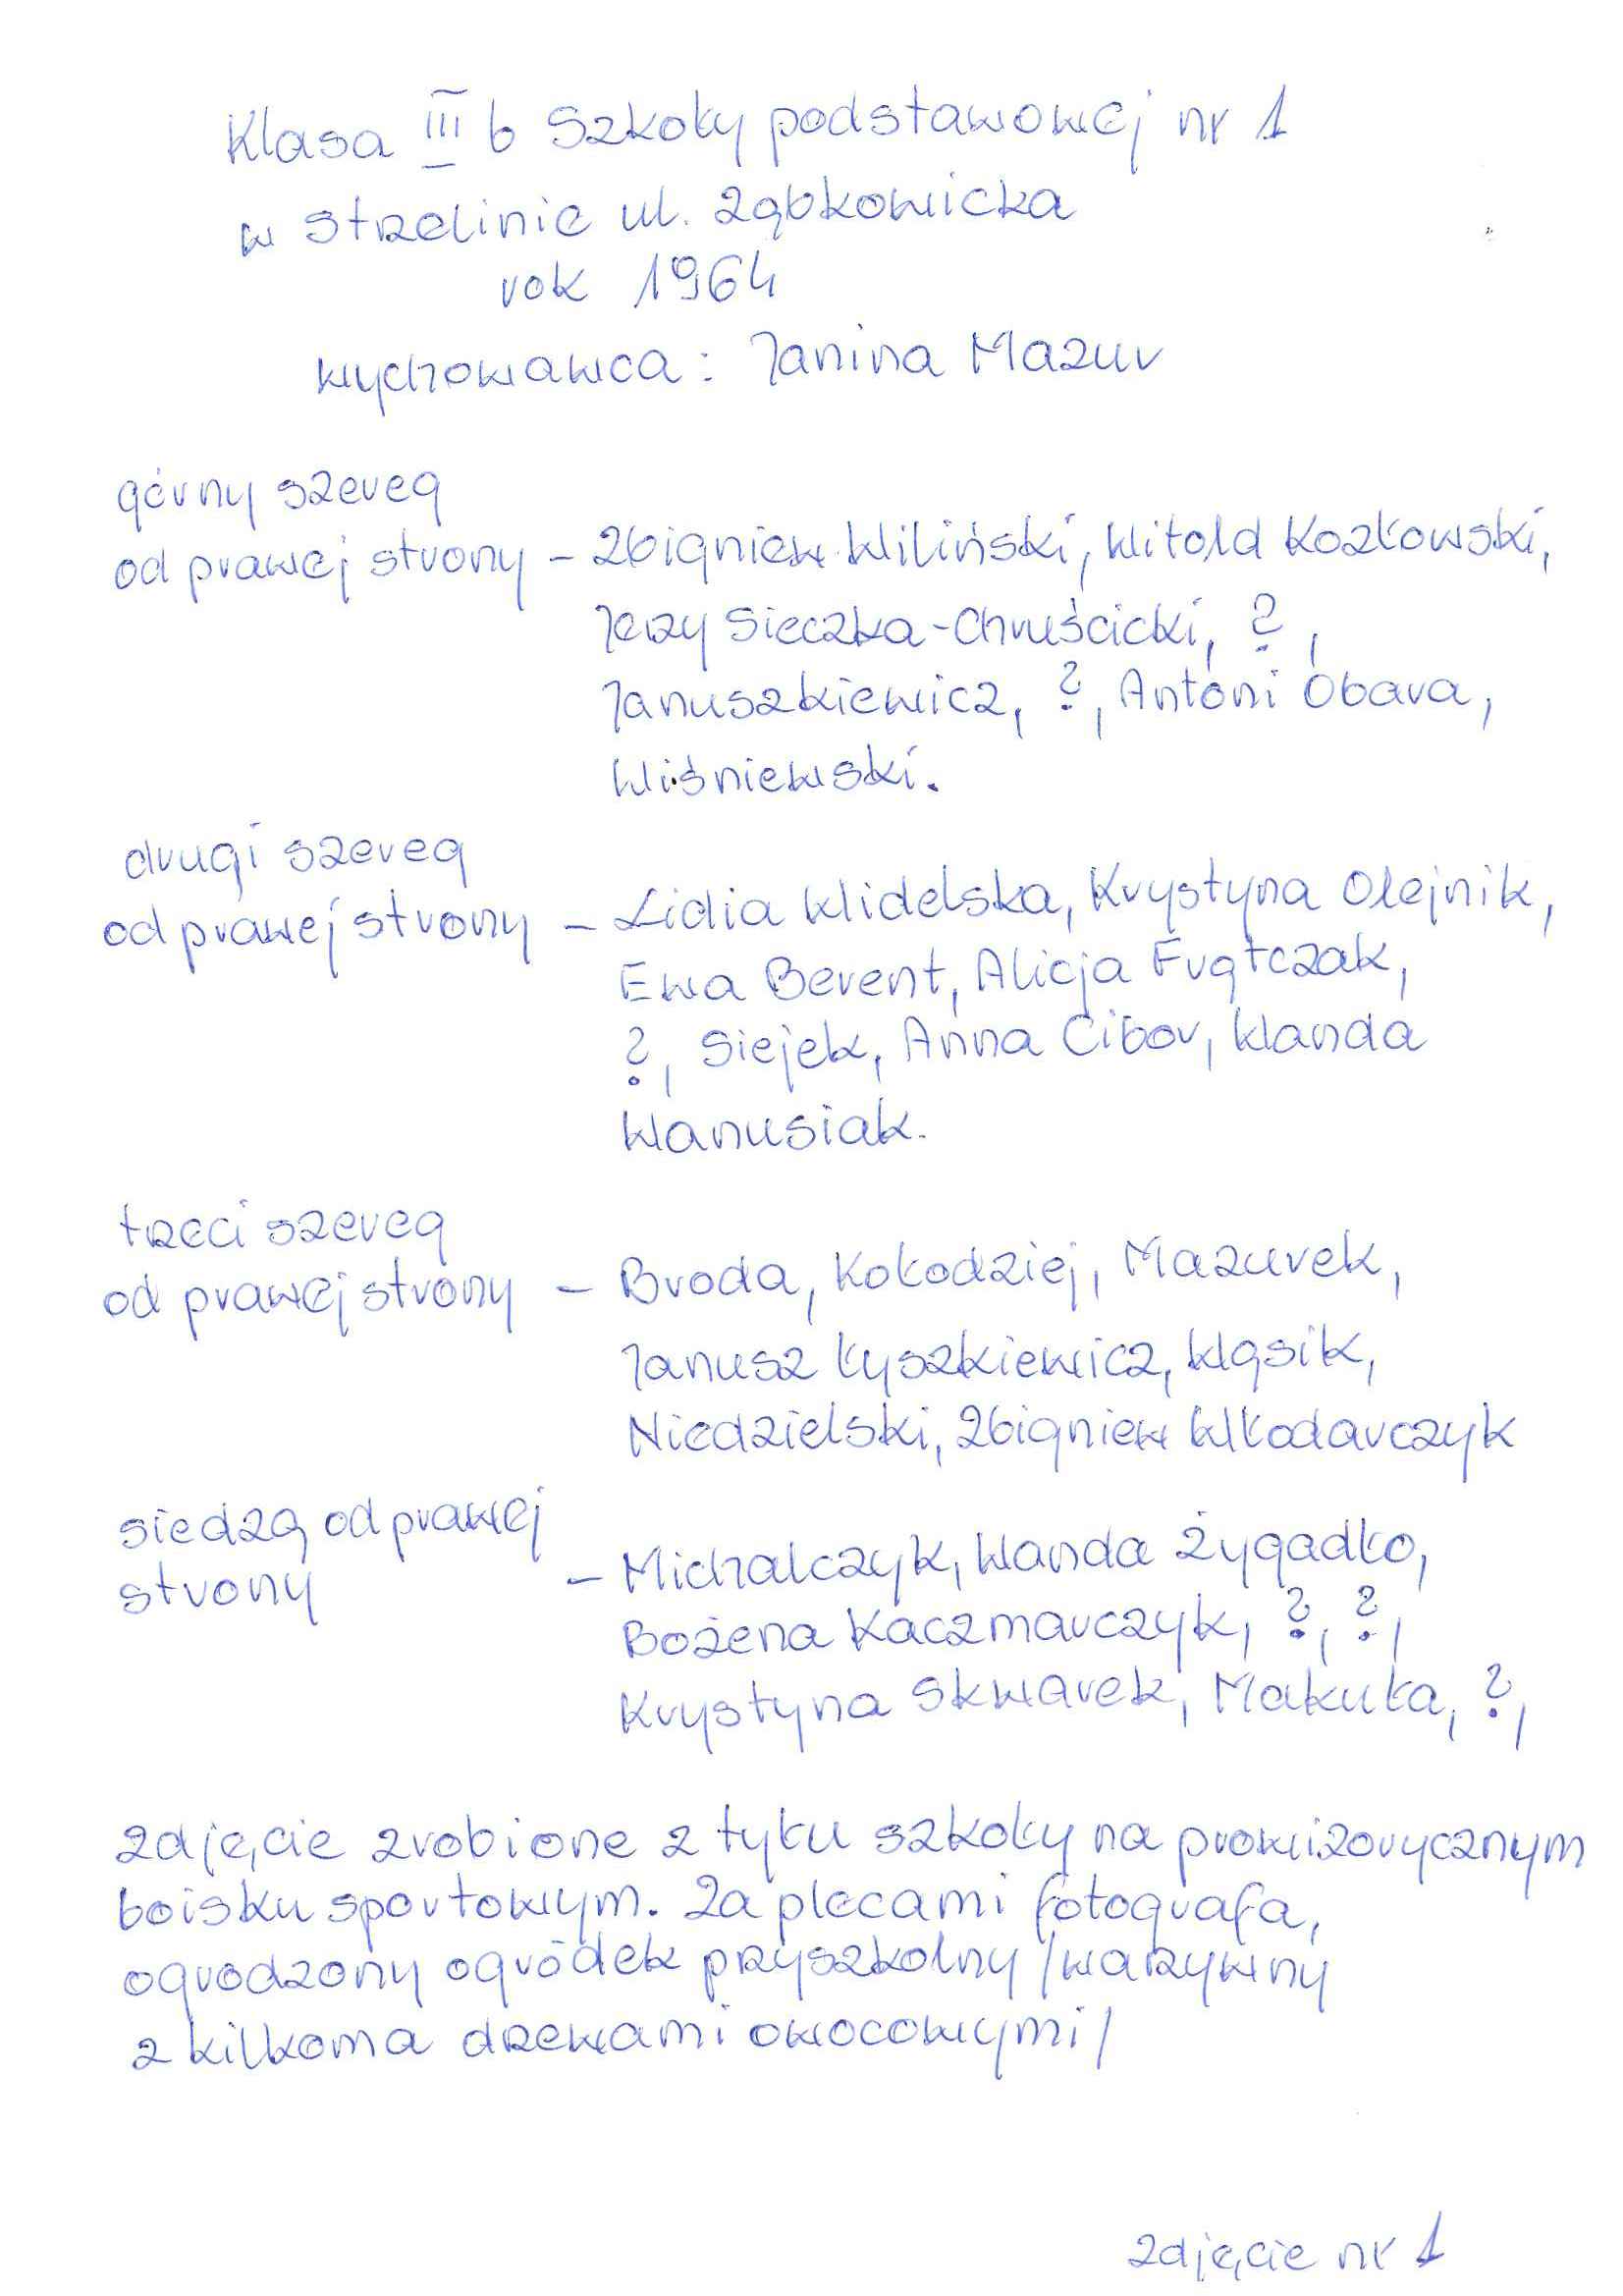 Klasa III b Szkoły podstawowej nr 1
w Strzelinie ul. Ząbkowicka
rok 1964
wychowawca: Janina Mazur
górny szereg
od prawej strony – Zbigniew Wiliński, Witold Kozłowski,
Jerzy Sieczka-Chruścicki, ?,
Januszkiewicz, ?, Antoni Obara,
Wiśniewski.
drugi szereg
od prawej strony – Lidia Widelska, Krystyna Olejnik,
Ewa Berent, Alicja Frątczak,
?, Siejek, Anna Cibor, Wanda
Wanusiak.
trzeci szereg
od prawej strony – Broda, Kołodziej, Mazurek,
Janusz Łyszkiewicz, Wąsik,
Niedzielski, Zbigniew Włodarczyk
siedzą od prawej
strony – Michalczyk, Wanda Żygadło,
Bożena Kaczmarczyk, ?, ?,
Krystyna Skwarek, Makuła, ?,
Zdjęcie zrobione z tyłu szkoły na prowizorycznym
boisku sportowym. Za plecami fotografa,
ogrodzony ogródek przyszkolny /warzywny
z kilkoma drzewami owocowymi/
Zdjęcie nr 1